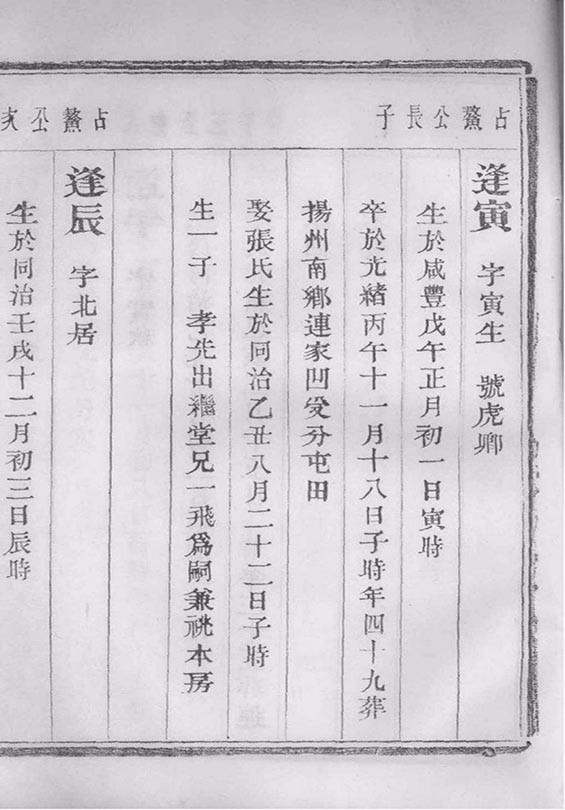 占鰲公長子
逢寅 字寅生 號虎卿
生於咸豐戊午正月初一日寅時
卒於光緒丙午十一月十八日子時年四十九葬
揚州南鄉連家凹受分屯田
娶張氏生於同治乙丑八月二十二日子時
生一子 孝先出繼堂兄一飛爲嗣兼祧本房
占鰲公次
逢辰 字北居
生於同治壬戌十二月初三日辰時